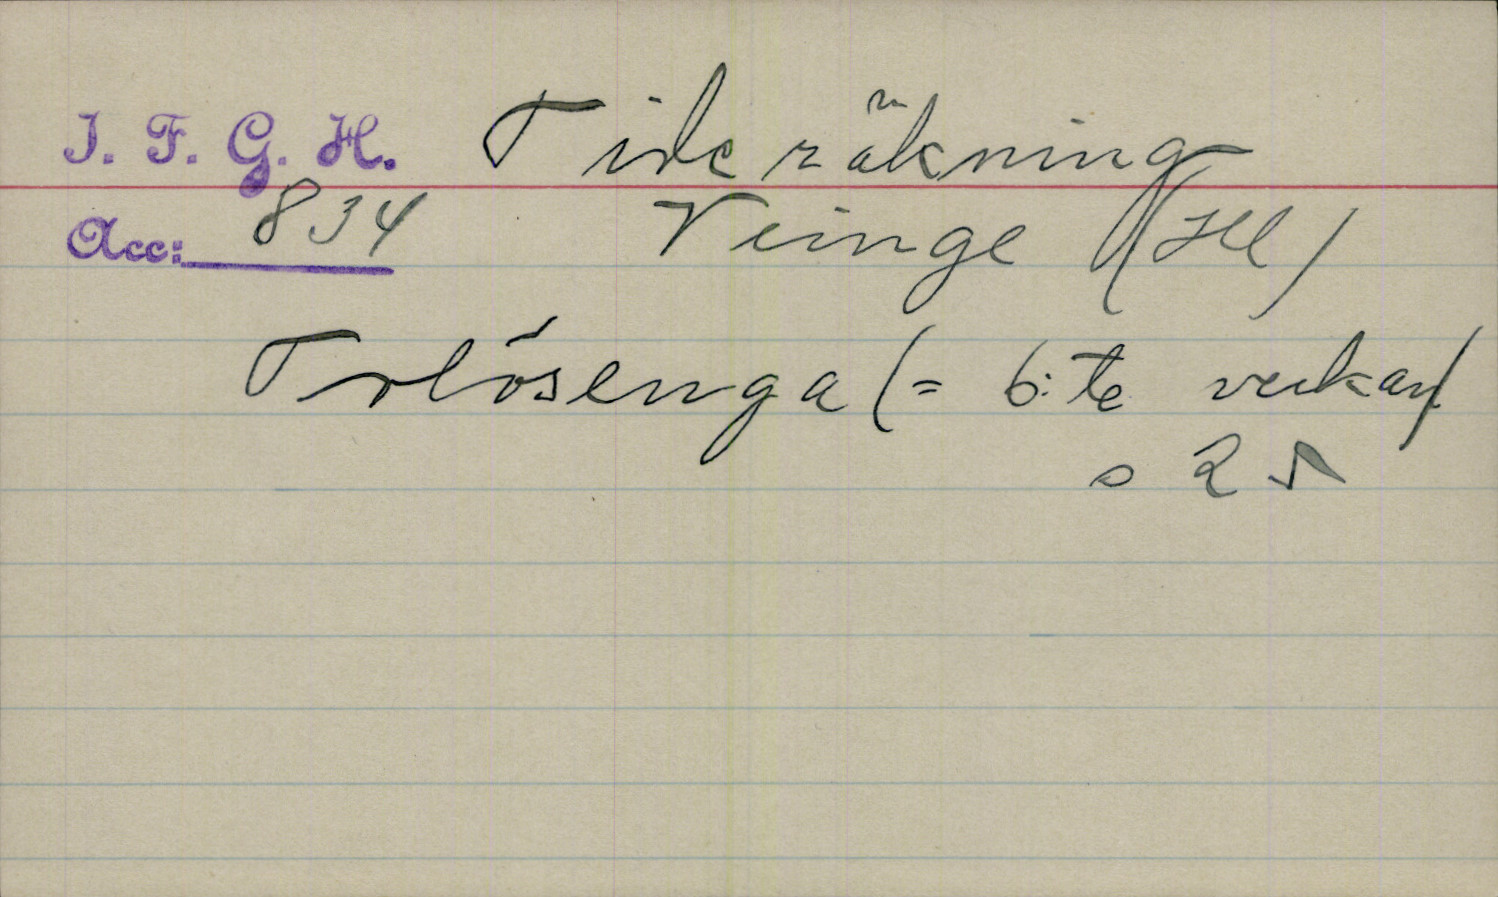 I. F. G. H. Tideräkning
Acc: 834 Veinge (Hl)
Trolösenga (= 6:te veckan)
s 25